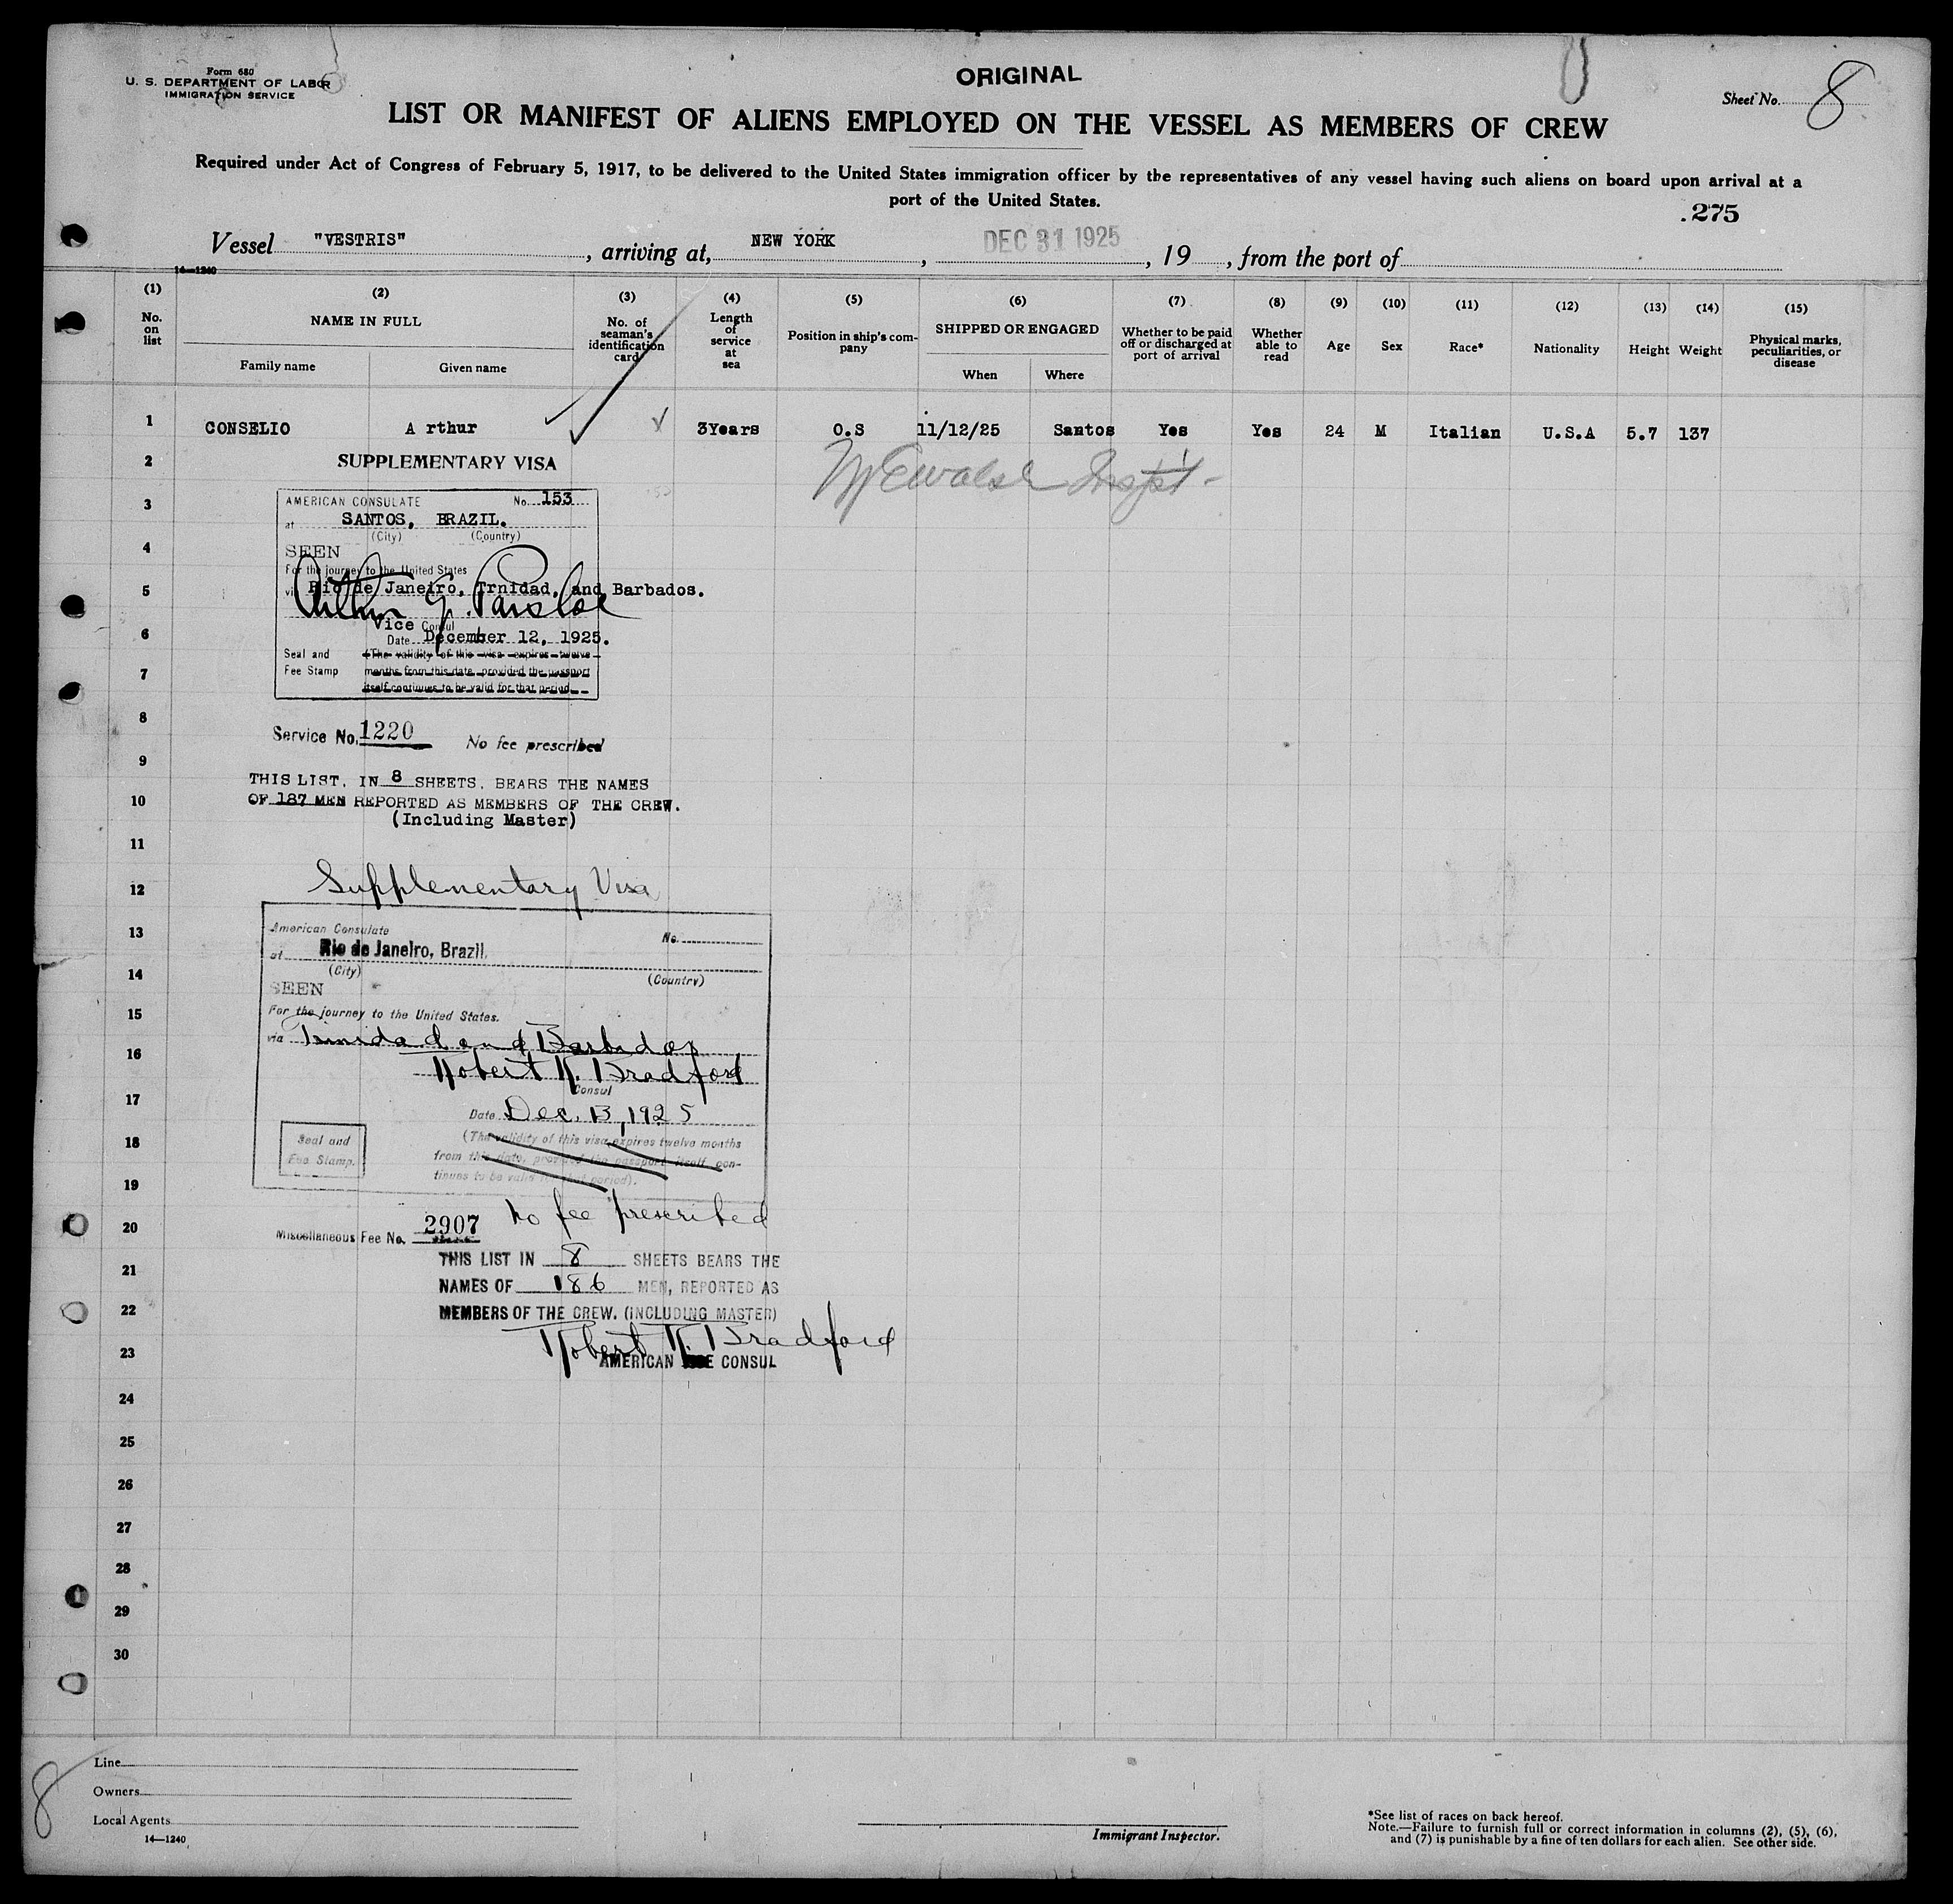 Form 680
U. S. DEPARTMENT OF LABOR
IMMIGRATION SERVICE
ORIGINAL
Sheet No. 8
LIST OR MANIFEST OF ALIENS EMPLOYED ON THE VESSEL AS MEMBERS OF CREW
Required under Act of Congress of February 5, 1917, to be delivered to the United States immigration officer by the representatives of any vessel having such aliens on board upon arrival at a
port of the United States.
.275
Vessel "VESTRIS", arriving at, NEW YORK, DEC 31 1925, 19, from the port of
14—1240
(1) (2) (3) (4) (5) (6) (7) (8) (9) (10) (11) (12) (13) (14) (15)
No. on list
NAME IN FULL
Family name
Given name
No. of seaman's identification card
Length of service at sea
Position in ship's company
SHIPPED OR ENGAGED
When
Where
Whether to be paid off or discharged at port of arrival
Whether able to read
Age
Sex
Race*
Nationality
Height
Weight
Physical marks, peculiarities, or disease
1 CONSELIO A rthur 3Years O.S 11/12/25 Santos Yes Yes 24 M Italian U.S.A 5.7 137
2 SUPPLEMENTARY VISA
AMERICAN CONSULATE No. 153
3
at SANTOS, BRAZIL.
(City) (Country)
4 SEEN
For the journey to the United States
5 via Rio de Janeiro, Trnidad, and Barbados.
Vice Consul
6 Date December 12, 1925.
Seal and (The validity of this visa expires twelve
7 Fee Stamp months from this date, provided the passport
itself continues to be valid for that period
8
Service No. 1220 No fee prescribed
9
THIS LIST, IN 8 SHEETS, BEARS THE NAMES
10 OF 187 MEN REPORTED AS MEMBERS OF THE CREW.
(Including Master)
11
12 Supplementary Visa
American Consulate No.
13
at Rio de Janeiro, Brazil.
14 (City) (Country)
SEEN
15 For the journey to the United States.
via Trinidad and Barbados
16 Robert R. Bradford
Consul
17 Date Dec. 13, 1925
18 Seal and Fee Stamp.
(The validity of this visa expires twelve months
from this date, provided the passport itself con-
tinues to be valid for that period).
19
no fee prescribed
20 Miscellaneous Fee No. 2907
THIS LIST IN 8 SHEETS BEARS THE
21
NAMES OF 186 MEN, REPORTED AS
22 MEMBERS OF THE CREW. (INCLUDING MASTER)
Robert R. Bradford
23 AMERICAN CONSUL
24
25
26
27
28
29
30
Line
Owners
Local Agents
14—1240
8
Immigrant Inspector.
*See list of races on back hereof.
Note.—Failure to furnish full or correct information in columns (2), (5), (6),
and (7) is punishable by a fine of ten dollars for each alien. See other side.